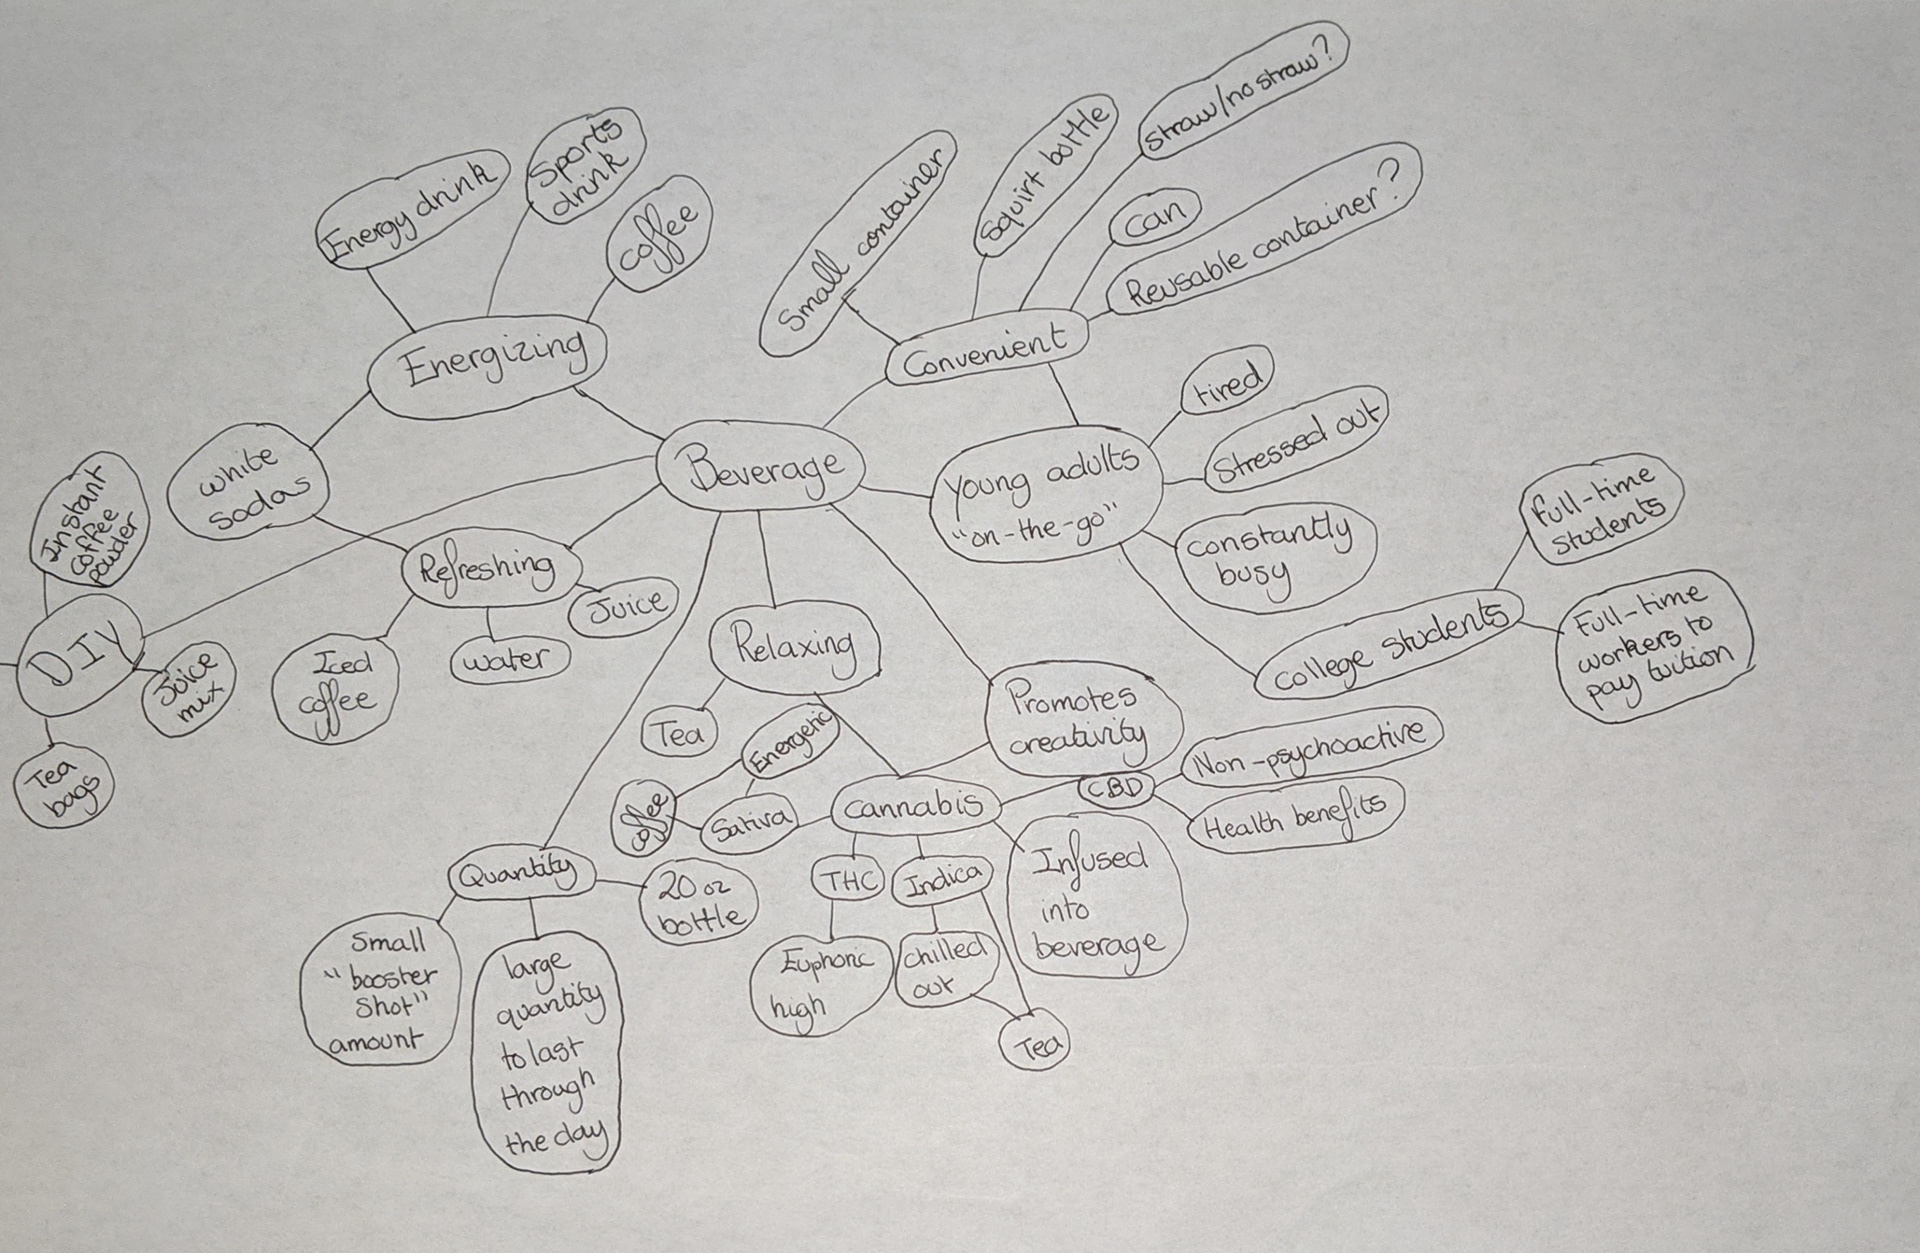 straw/no straw?
Squirt bottle
Small container
can
Reusable container?
Sports
drink
Energy drink
coffee
Energizing
Convenient
tired
Stressed out
Beverage
Young adults
"on-the-go"
white
sodas
Instant
coffee
powder
constantly
busy
Full-time
students
Refreshing
Juice
water
Iced
coffee
DIY
Juice
mix
Tea
bags
Relaxing
Tea
college students
Full-time
workers to
pay tuition
Promotes
creativity
Energetic
coffee
Sativa
cannabis
CBD
Non-psychoactive
Health benefits
THC
Indica
Infused
into
beverage
Euphoric
high
chilled
out
Tea
Quantity
20 oz
bottle
Small
"booster
Shot"
amount
large
quantity
to last
through
the day